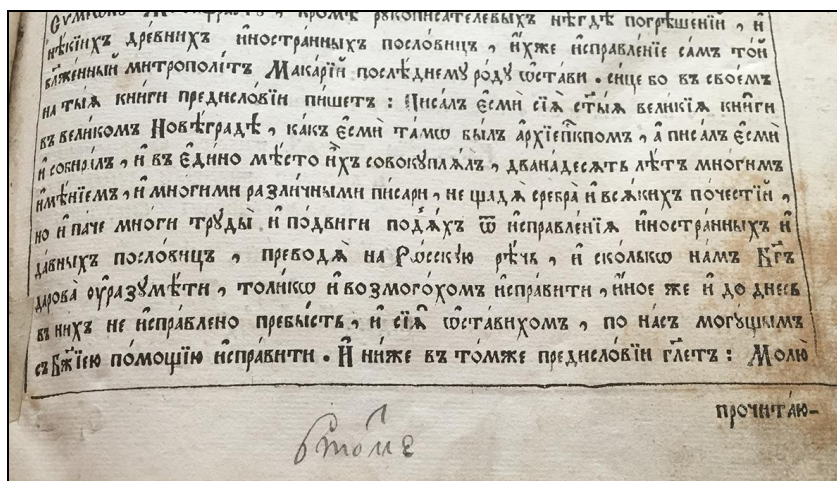 Сѷмеѡна Метафраста, кромѣ рꙋкописателевыхъ нѣгдѣ погрѣшенїй, и҆
нѣкїихъ древнихъ и҆ностра́нныхъ посло́вицъ, и҆́хже и҆справле́нїе са́мъ то́й
бл҃же́нный митрополі́тъ Мака́рїй послѣ́днему ро́ду ѡ҆ста́ви. си́це бо въ свое́мъ
на ты́ѧ кни́ги предисло́вїи пи́шетъ: Писа́лъ є҆смѝ сїѧ̑ ст҃ы́ѧ вели́кїѧ кни̑ги
въ вели́комъ Новѣ́градѣ, ка́къ є҆смѝ та́мѡ бы́лъ а҆рхїепⷭ҇кпомъ, а҆ писа́лъ є҆смѝ
и҆ собира́лъ, и҆ въ є҆ди́но мѣ́сто и҆́хъ совокуплѧ́лъ, двана́десѧть лѣ́тъ мно́гимъ
и҆мѣ́нїемъ, и҆ мно́гими разли́чными писари̑, не щадѧ̀ сребра̀ и҆ всѧ́кихъ по́честїй,
но и҆ па́че мно́ги труды̀ и҆ по́двиги под̾ѧ́хъ ѿ и҆справле́нїѧ и҆ностра́нныхъ и҆
да́вныхъ посло́вицъ, преводѧ̀ на Рѡ́сскую рѣ́чь, и҆ ско́лькѡ на́мъ Бг҃ъ
дарова̀ ᲂу҆разумѣ́ти, толи́кѡ и҆ возмого́хомъ и҆спра́вити, и҆но́е же и҆ до дне́сь
въ ни́хъ не и҆спра́влено пребы́сть, и҆ сїѧ̑ ѡ҆ста́вихомъ, по на́съ могу́щымъ
съ Бж҃їею по́мощїю и҆спра́вити. И҆ ни́же въ то́мже предисло́вїи гл҃етъ: Молю̀
прочита́ю-